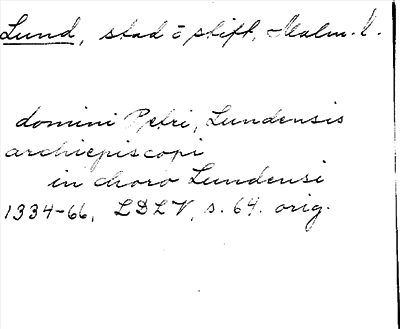 Lund, stad o stift, Malm. l.
domini Petri, Lundensis
archiepiscopi
in choro Lundensi
1334-66, LDLV, s. 64. orig.